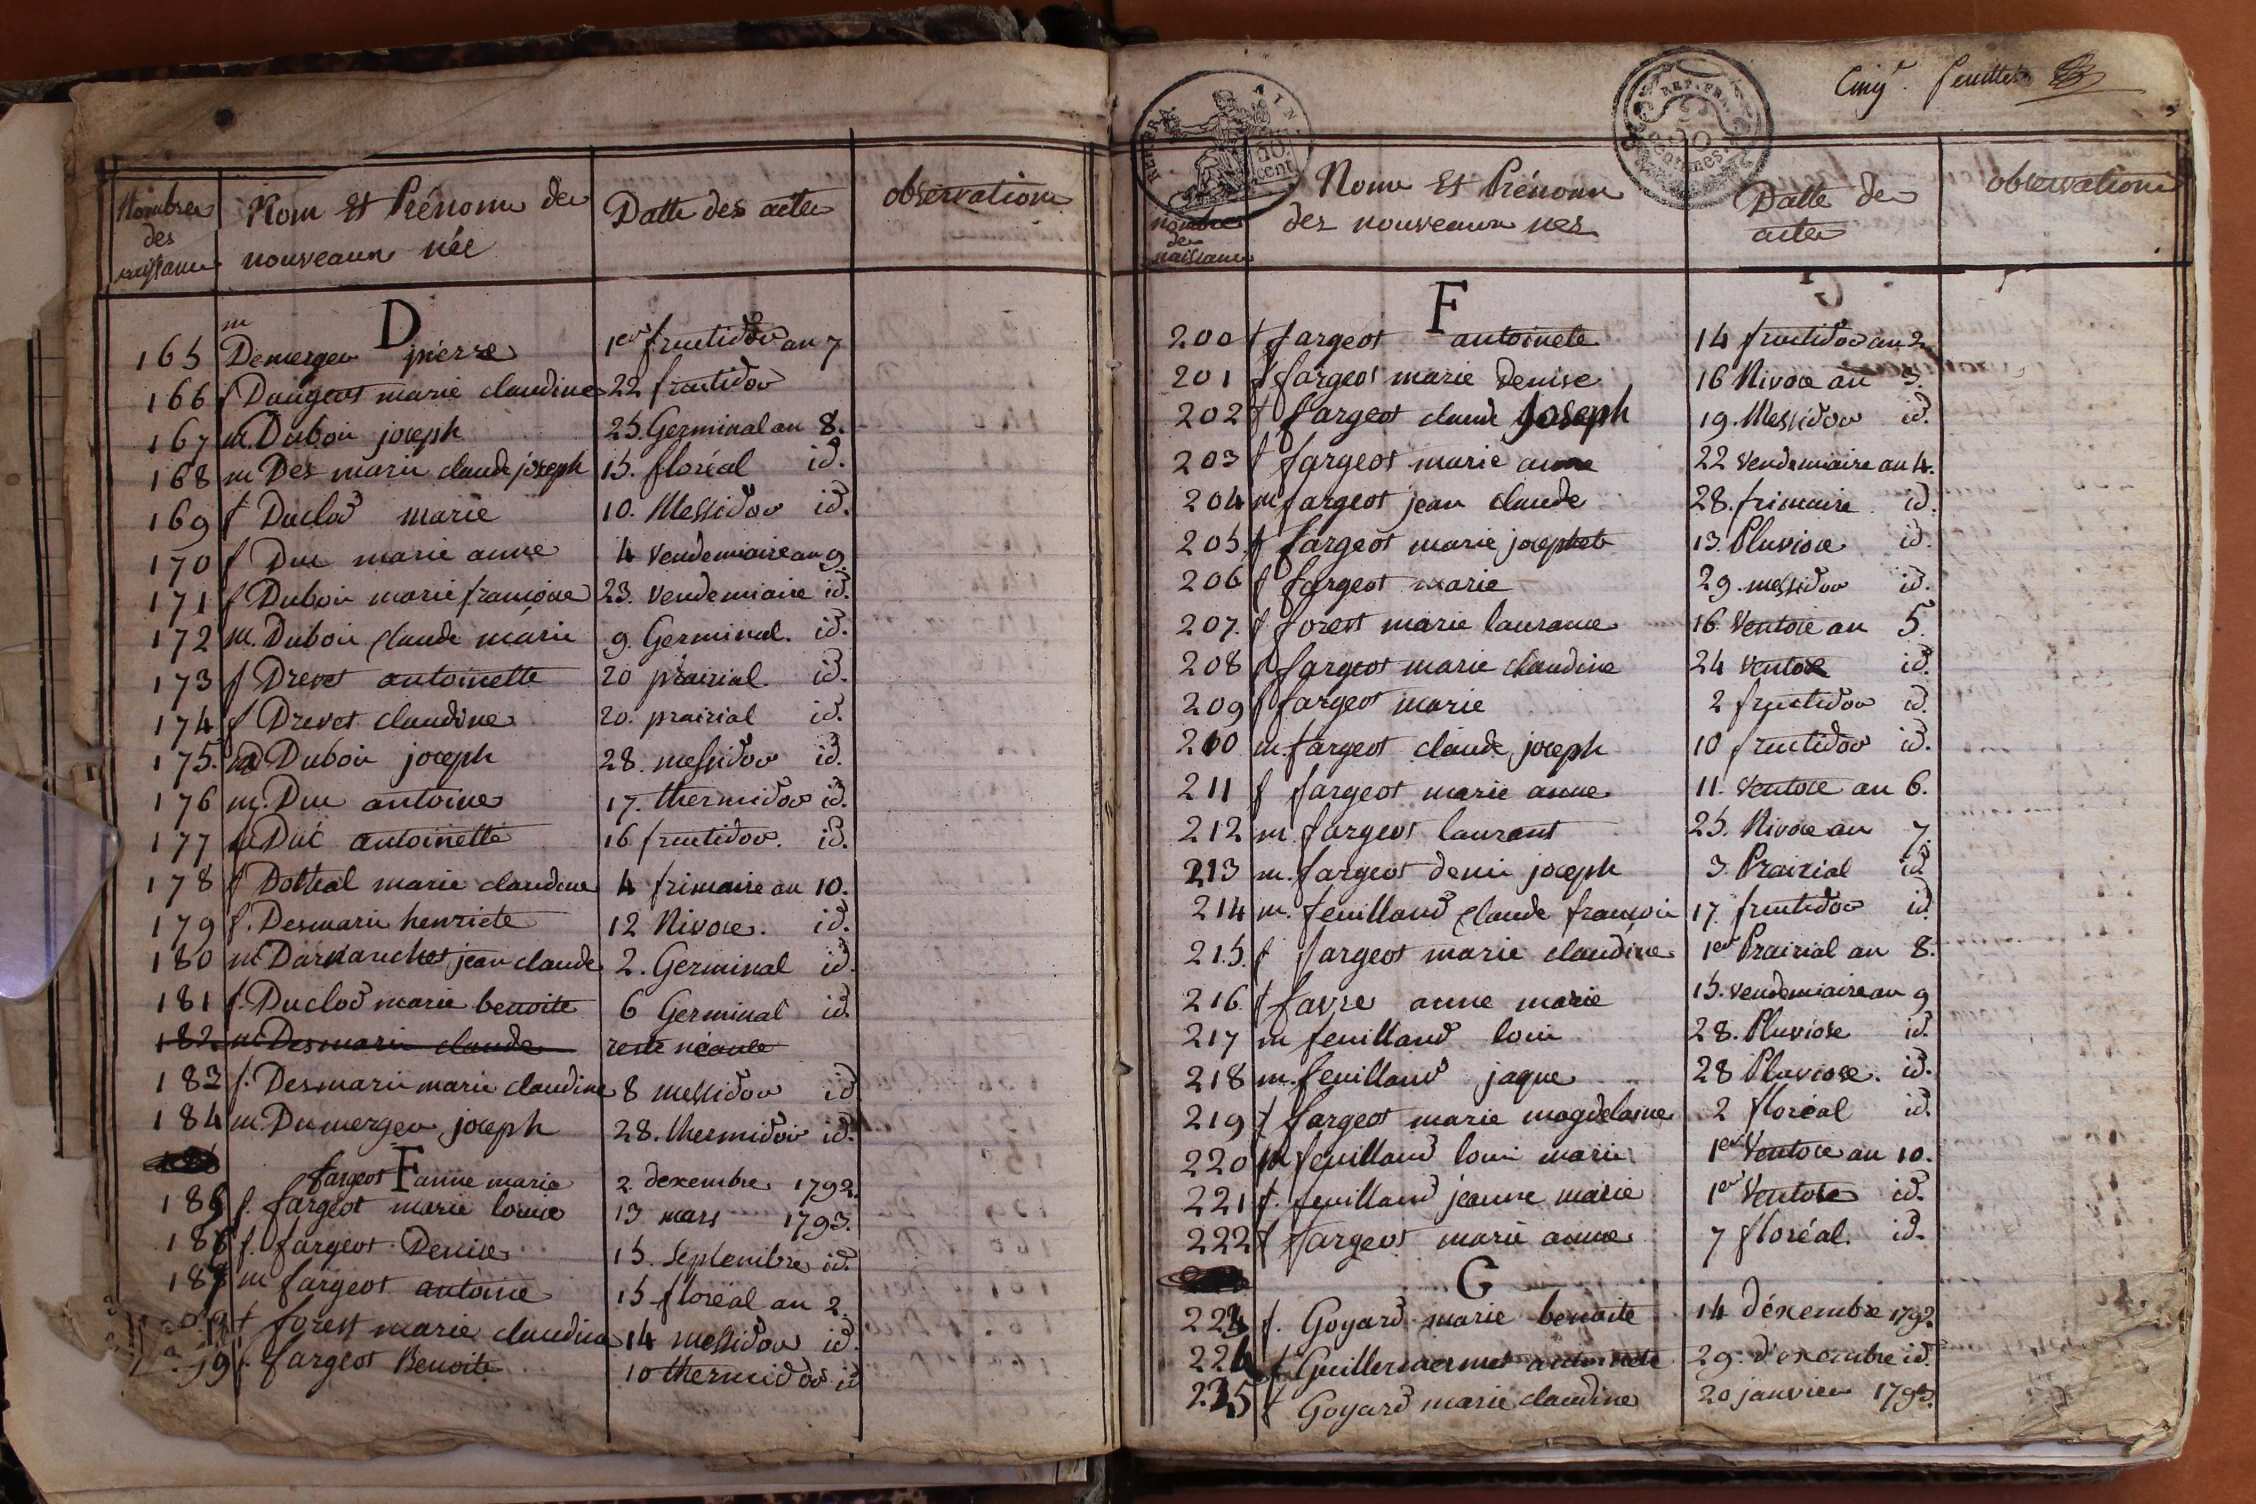 Nombre des naissance
Nom Et Prénom de nouveaux née
Datte des acte
observation
D
165 m Demerger pierre 1er fructidor an 7
166 f Daugeros marie claudine 22 fructidor
167 m. Duboi joseph 25. Germinal an 8.
168 m Des marie claude joseph 15. floréal id.
169 f Duclod marie 10. Messidor id.
170 f Duc marie anne 4 vendemiaire an 9.
171 f Duboi marie francoise 23. vendemiaire id.
172 m. Duboi claude marie 9. Germinal. id.
173 f Drevet antoinette 20 prairial. id.
174 f Drevet claudine 20. prairial id.
175. m Duboi joseph 28. messidor id.
176 m. Duc antoine 17. thermidor id.
177 Duc antoinette 16 fructidor. id.
178 f Dothal marie claudine 4 frimaire an 10.
179 f. Desmarie henriete 12 Nivose. id.
180 m Darnanchet jean claude 2. Germinal id.
181 f. Duclod marie benoite 6 Germinal id.
182 m Desmarie claude reste néante
183 f. Desmarie marie claudine 8 messidor id
184 m. Dumerger joseph 28. thermidor id.
F
fargeot anne marie 2. dexembre 1792.
f. fargeot marie louise 13 mars 1793.
f. fargeot Denise 15. Septembre id.
m fargeot antoine 15 floréal an 2.
f forest marie claudine 14 messidor id.
f. fargeot Benoite 10 thermidor id
Cinq. feuillet
10 cent
REP. FRA.
nombre de naissance
Nom Et Prénom des nouveaux nes
Datte de acte
observation
F
200 f fargeot antoinete 14 fructidor an 2
201 f fargeot marie denise 16 Nivose an 3.
202 f fargeot claude Joseph 19. Messidor id.
203 f fargeot marie anne 22 vendemiaire an 4.
204 m fargeot jean claude 28. frimaire id.
205. f fargeot marie josephete 13. Pluviose id.
206 f fargeot marie 29. messidor id.
207. f forest marie laurance 16. Ventose an 5.
208 f fargeot marie claudine 24 ventose id.
209 f fargeot marie 2 fructidor id.
210 m. fargeot claude joseph 10 fructidor id.
211 f fargeot marie anne 11. ventose an 6.
212 m fargeot laurent 25. Nivose an 7.
213 m. fargeot deni joseph 3. Prairial id.
214 m. feuilland claude francoi 17. fructidor id.
215. f fargeot marie claudine 1er Prairial an 8.
216. f favre anne marie 15. vendemiaire an 9
217 m feuilland loui 28. Pluviose id.
218 m. feuilland jaque 28 Pluviose. id.
219 f fargeot marie magdelaine 2 floréal id.
220 m feuilland loui marie 1er Ventose an 10.
221 f. feuilland jeanne marie 1er Ventose id.
222 f fargeot marie anne 7 floréal. id.
G
f. Goyard marie benoite 14 déxembre 1792.
f Guillermermet antoinete 29. dexembre id.
f Goyard marie claudine 20 janvier 1793.